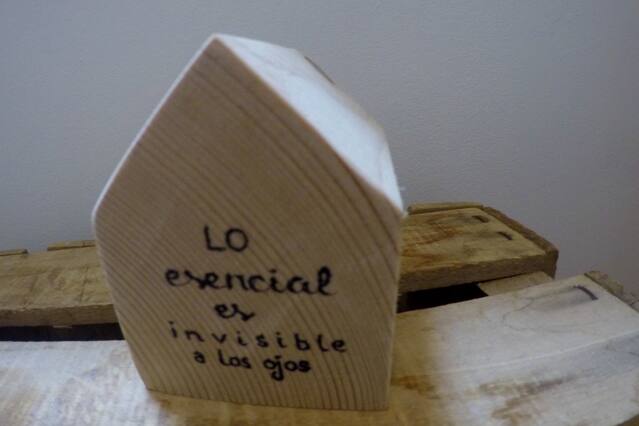 LO
esencial
es
invisible
a los ojos